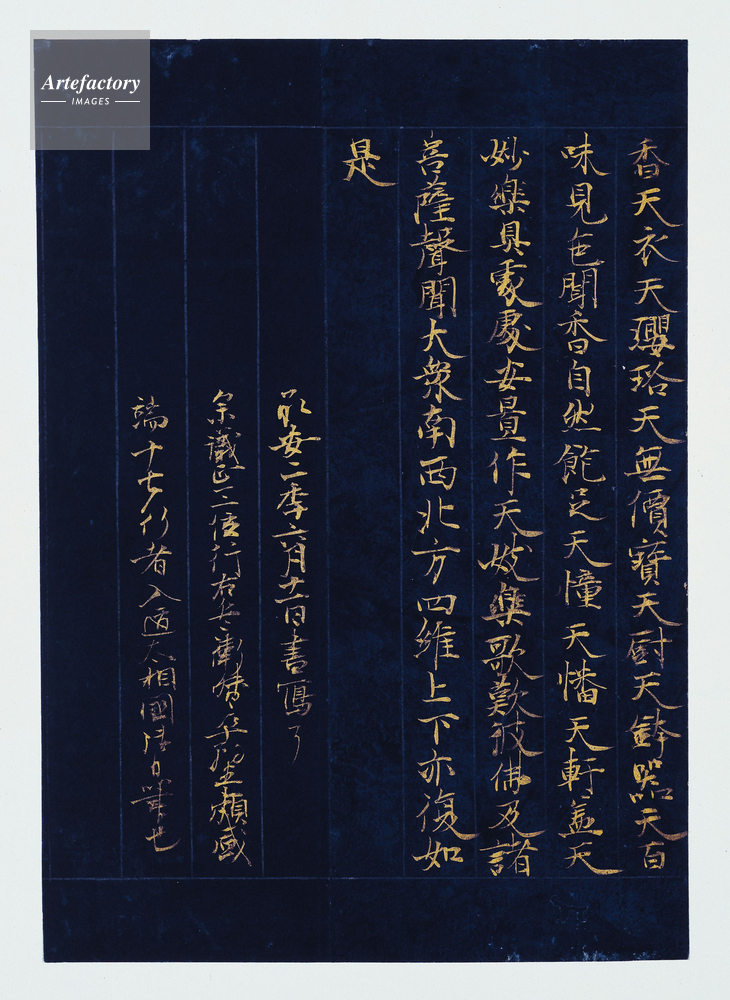 Artefactory
IMAGES
香天衣天瓔珞天無價寶天厨天鉢器天百
味見色聞香自然飽足天幢天幡天軒蓋天
妙樂具處處安置作天妓樂歌歎彼佛及諸
菩薩聲聞大衆南西北方四維上下亦復如
是
承安二季六月十一日書寫了
識正三位行右兵衛督平朝臣頼盛
端十七行者入道太相國清自筆也